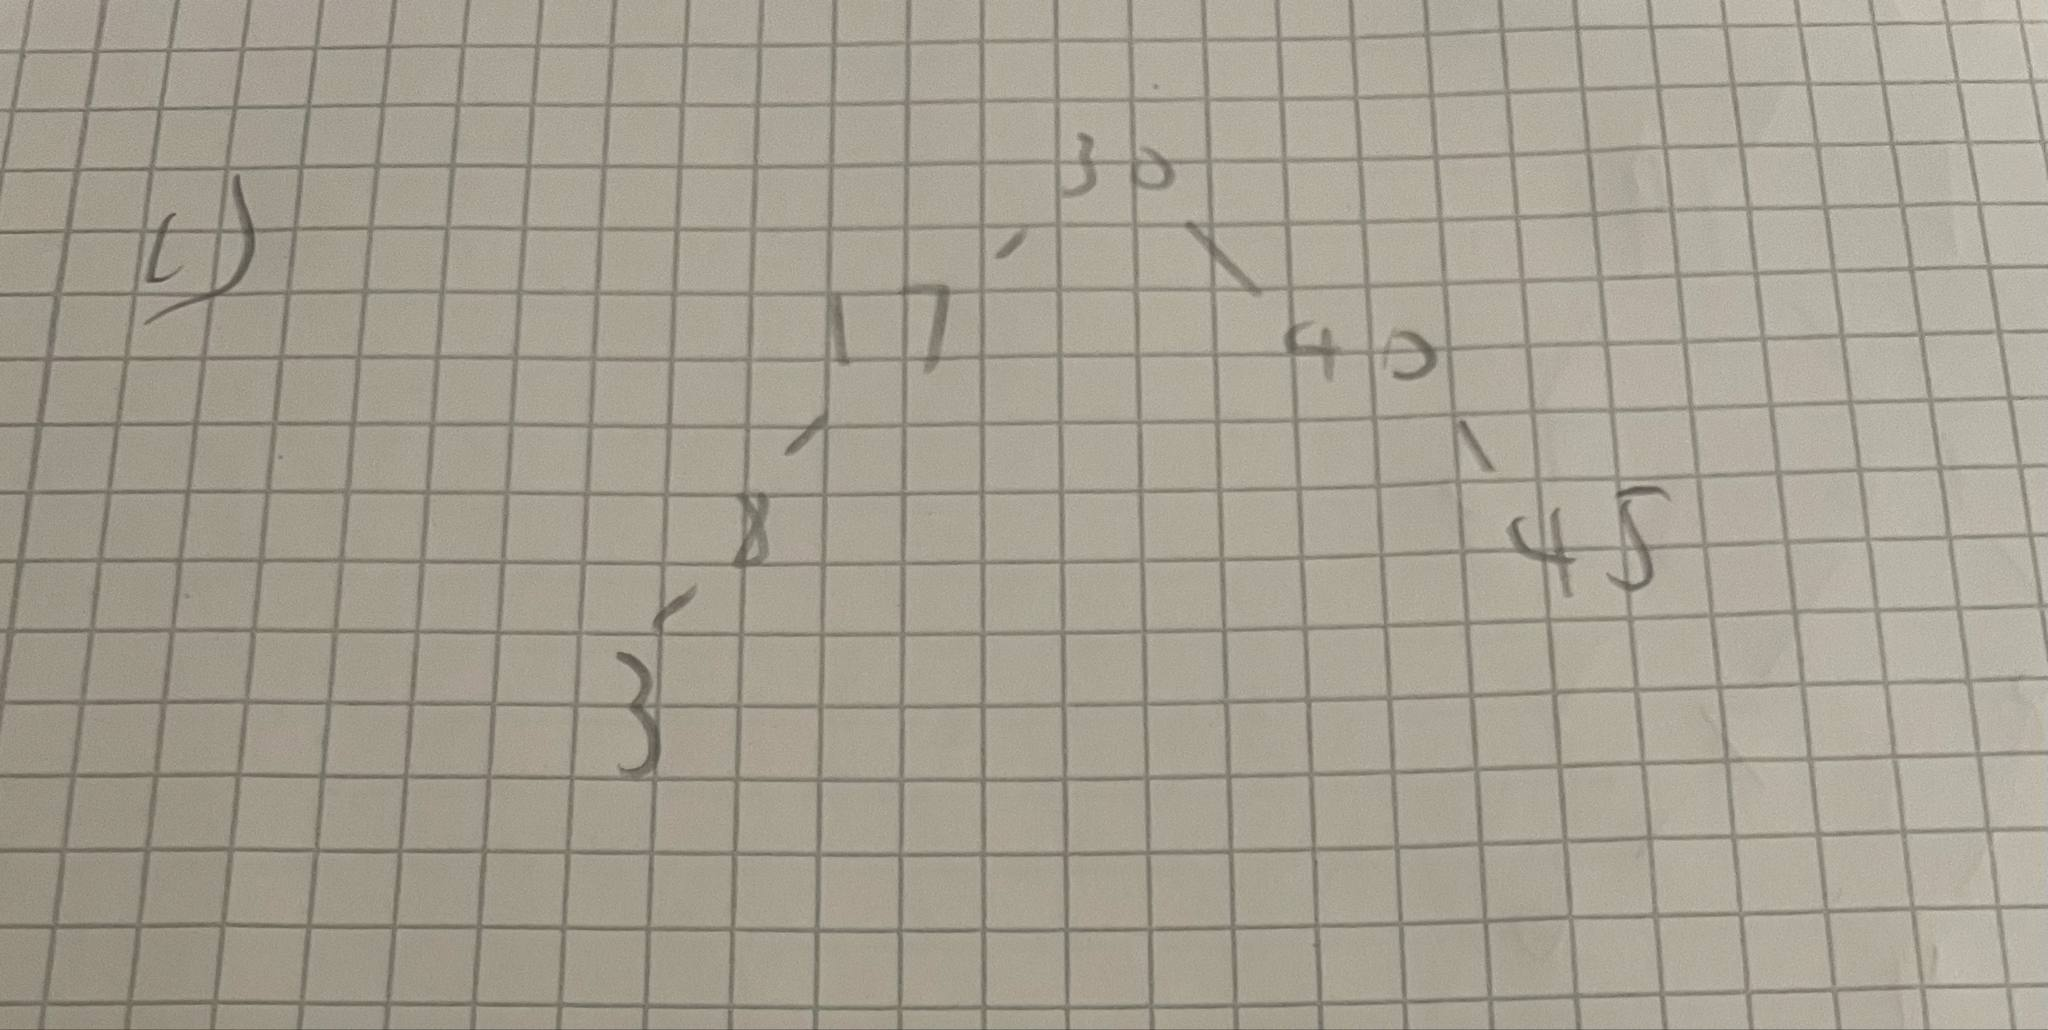 c)
30
17 40
8 45
3